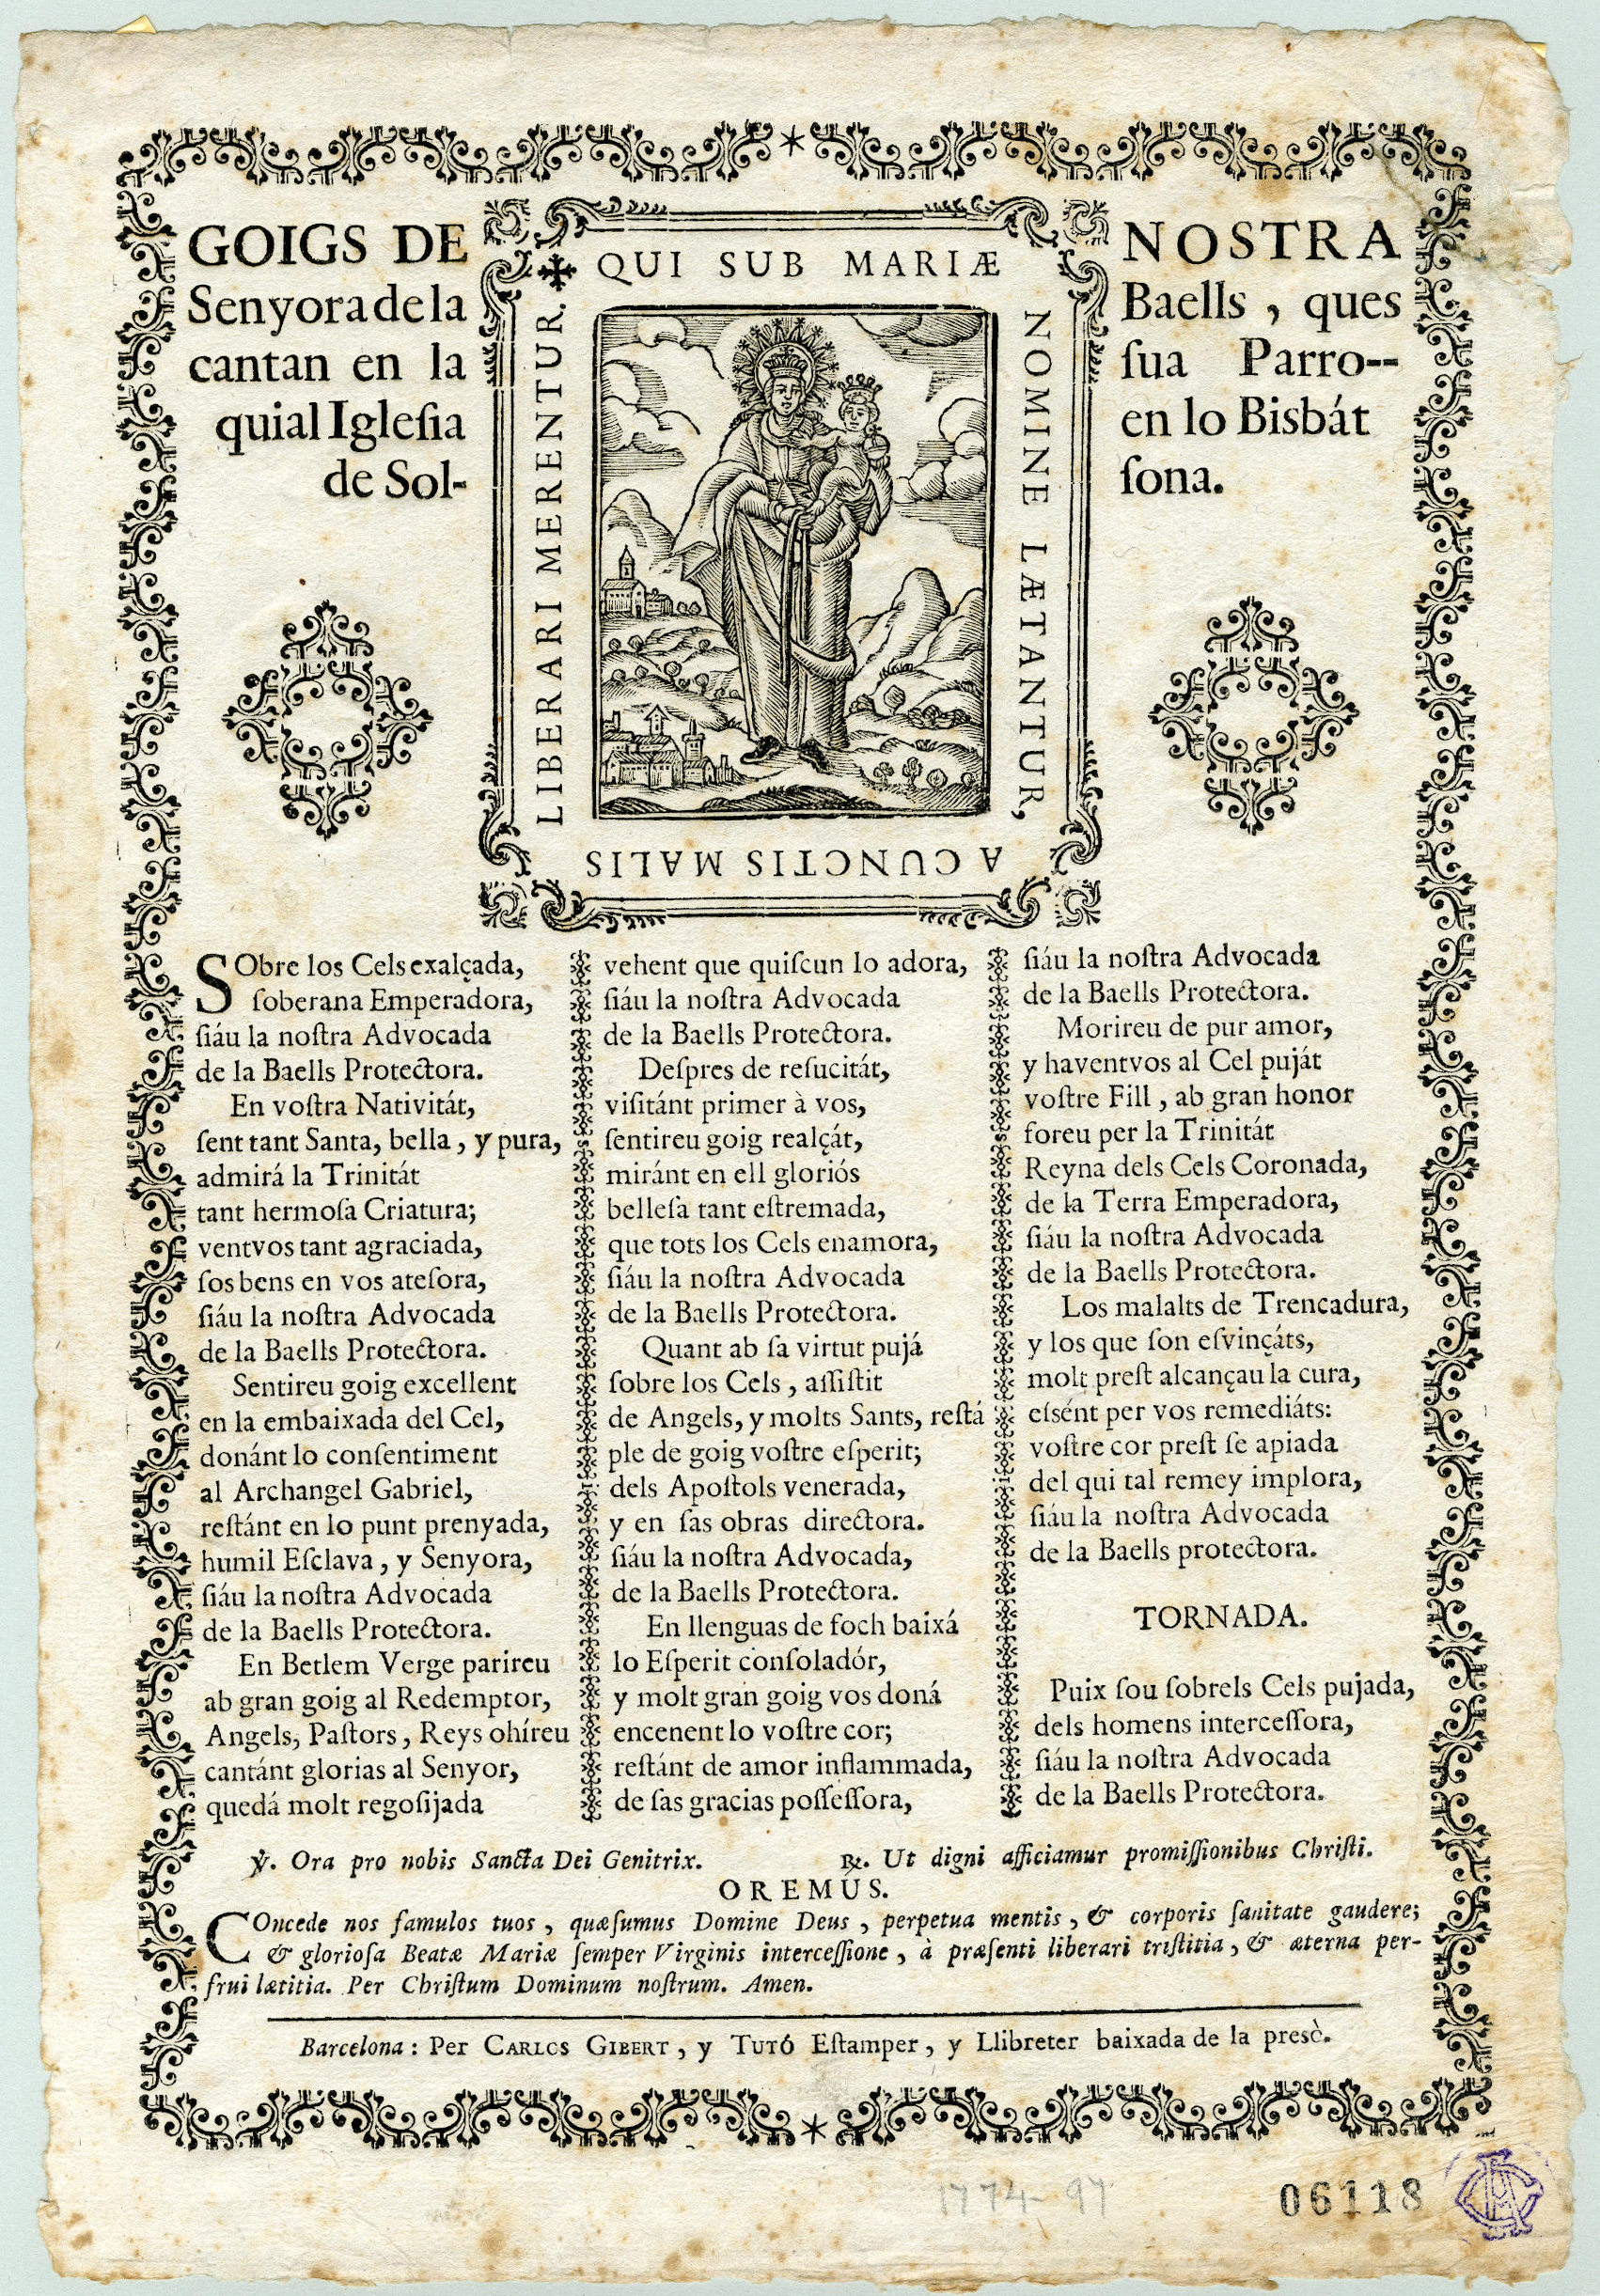 GOIGS DE NOSTRA
Senyora de la Baells, ques
cantan en la ſua Parro--
quial Igleſia en lo Bisbát
de Sol- ſona.
✠ QUI SUB MARIÆ
NOMINE LÆTANTUR,
A CUNCTIS MALIS
LIBERARI MERENTUR.
SObre los Cels exalçada,
ſoberana Emperadora,
ſiáu la noſtra Advocada
de la Baells Protectora.
En voſtra Nativitát,
ſent tant Santa, bella, y pura,
admirá la Trinitát
tant hermoſa Criatura;
ventvos tant agraciada,
ſos bens en vos ateſora,
ſiáu la noſtra Advocada
de la Baells Protectora.
Sentireu goig excellent
en la embaixada del Cel,
donánt lo conſentiment
al Archangel Gabriel,
reſtánt en lo punt prenyada,
humil Eſclava, y Senyora,
ſiáu la noſtra Advocada
de la Baells Protectora.
En Betlem Verge parireu
ab gran goig al Redemptor,
Angels, Paſtors, Reys ohíreu
cantánt glorias al Senyor,
quedá molt regoſijada
vehent que quiſcun lo adora,
ſiáu la noſtra Advocada
de la Baells Protectora.
Deſpres de reſucitát,
viſitánt primer à vos,
ſentireu goig realçát,
miránt en ell gloriós
belleſa tant eſtremada,
que tots los Cels enamora,
ſiáu la noſtra Advocada
de la Baells Protectora.
Quant ab ſa virtut pujá
ſobre los Cels, aſſiſtit
de Angels, y molts Sants, reſtá
ple de goig voſtre eſperit;
dels Apoſtols venerada,
y en ſas obras directora.
ſiáu la noſtra Advocada,
de la Baells Protectora.
En llenguas de foch baixá
lo Eſperit conſoladór,
y molt gran goig vos doná
encenent lo voſtre cor;
reſtánt de amor inflammada,
de ſas gracias poſſeſſora,
ſiáu la noſtra Advocada
de la Baells Protectora.
Morireu de pur amor,
y haventvos al Cel puját
voſtre Fill, ab gran honor
foreu per la Trinitát
Reyna dels Cels Coronada,
de la Terra Emperadora,
ſiáu la noſtra Advocada
de la Baells Protectora.
Los malalts de Trencadura,
y los que ſon eſvinçáts,
molt preſt alcançau la cura,
eſsént per vos remediáts:
voſtre cor preſt ſe apiada
del qui tal remey implora,
ſiáu la noſtra Advocada
de la Baells protectora.
TORNADA.
Puix ſou ſobrels Cels pujada,
dels homens interceſſora,
ſiáu la noſtra Advocada
de la Baells Protectora.
℣. Ora pro nobis Sancta Dei Genitrix. ℟. Ut digni afficiamur promiſſionibus Chriſti.
OREMUS.
COncede nos famulos tuos, quæſumus Domine Deus, perpetua mentis, & corporis ſanitate gaudere;
& glorioſa Beatæ Mariæ ſemper Virginis interceſſione, à præſenti liberari triſtitia, & æterna per-
frui lætitia. Per Chriſtum Dominum noſtrum. Amen.
Barcelona: Per CARLOS GIBERT, y TUTÓ Eſtamper, y Llibreter baixada de la presò.
1774-97
06118